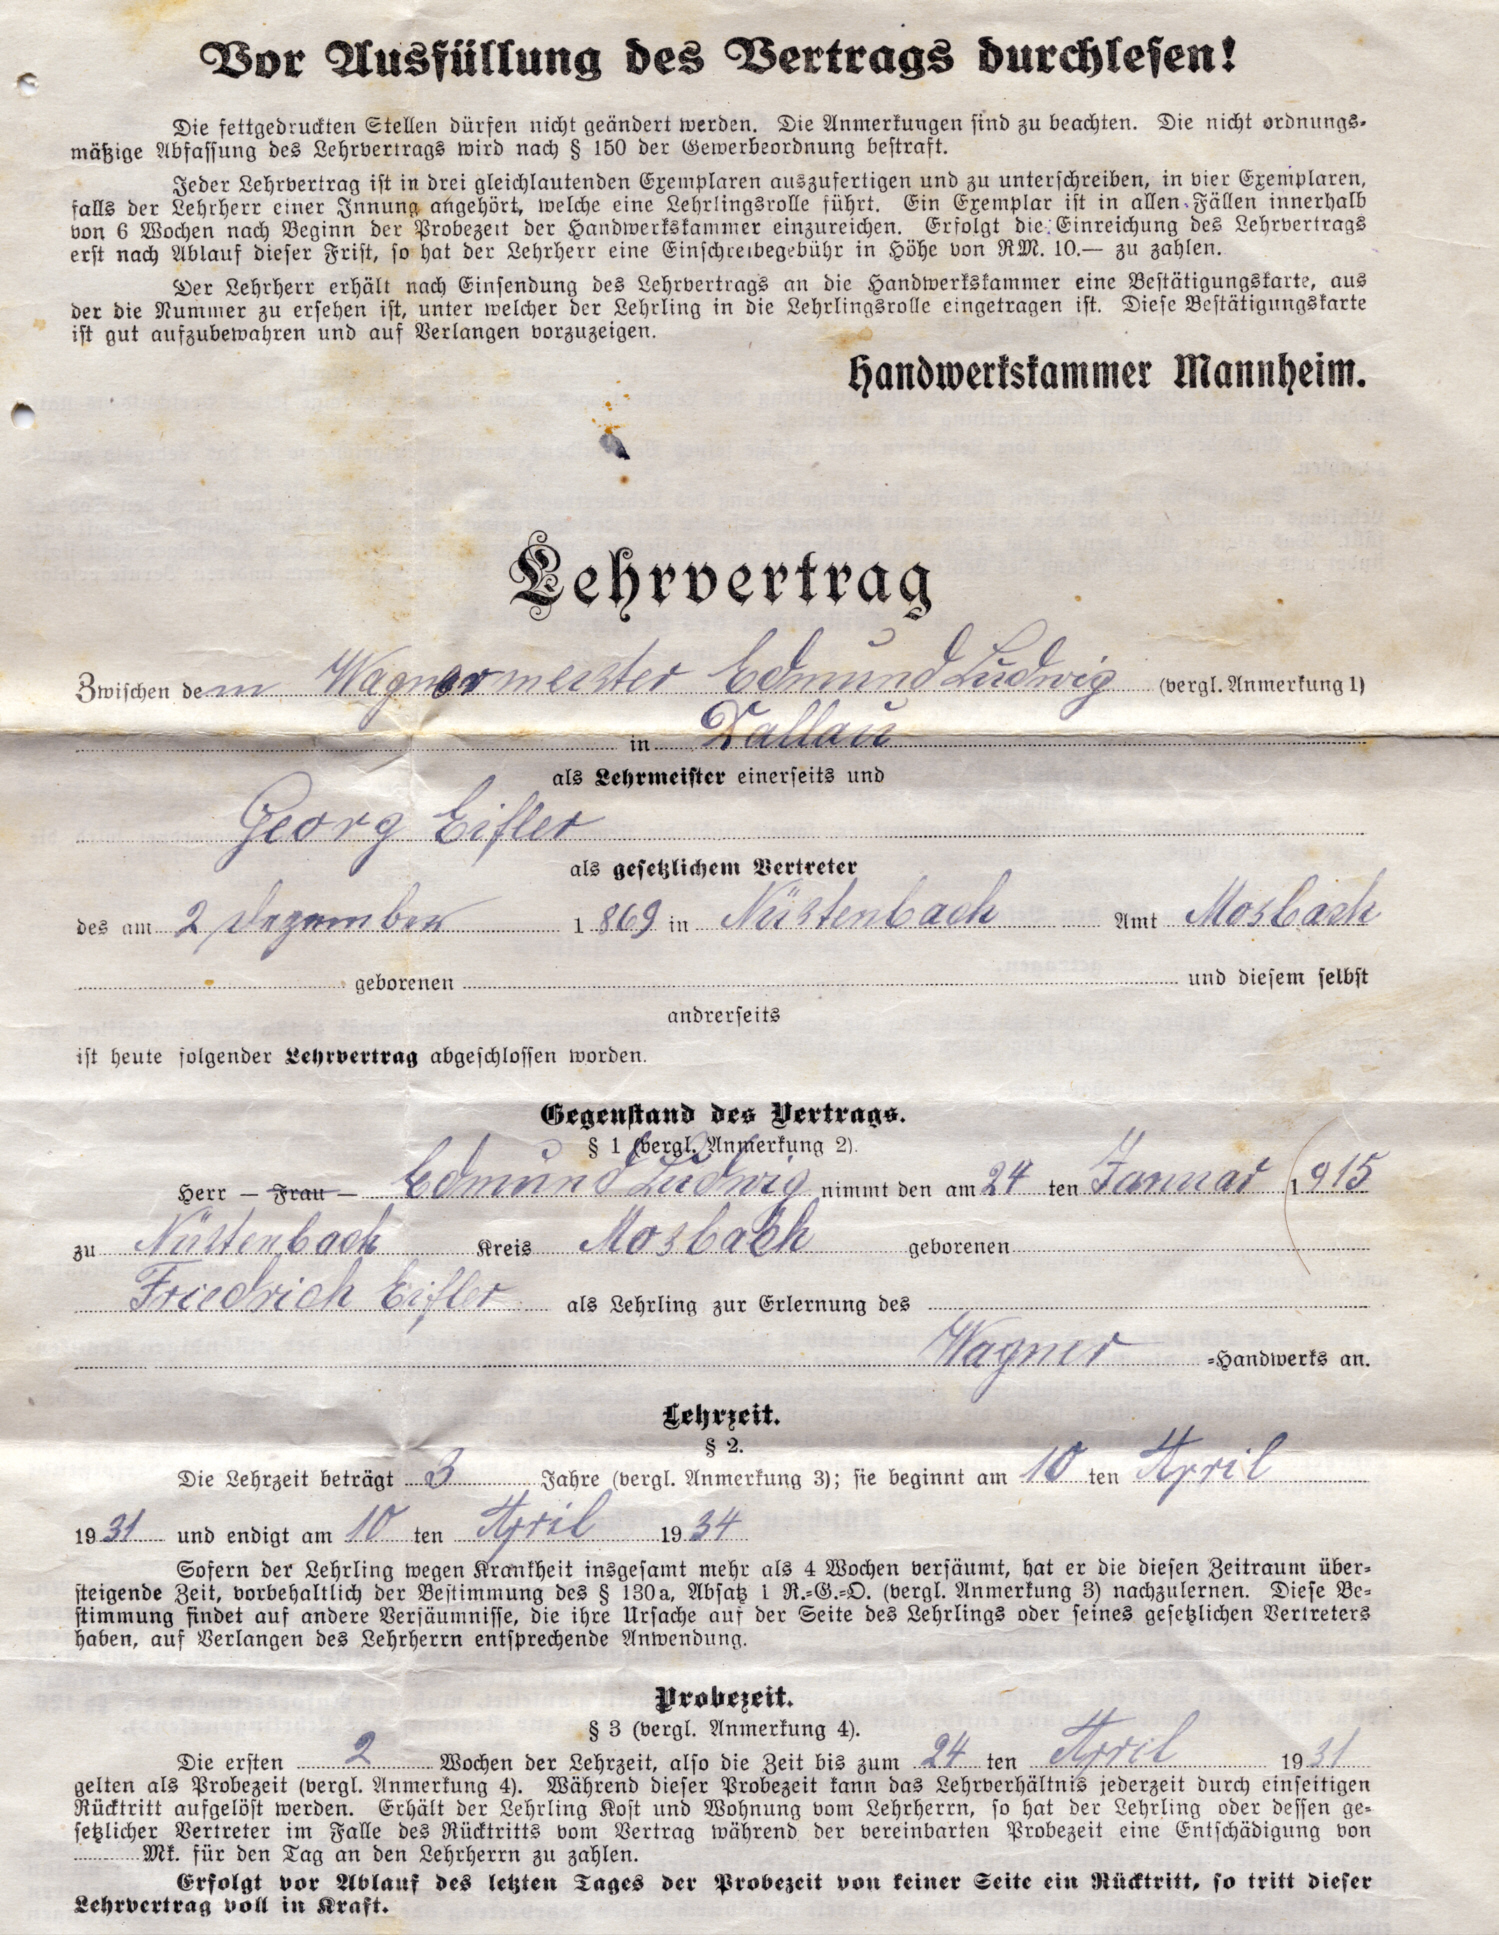 Vor Ausfüllung des Vertrags durchlesen!
Die fettgedruckten Stellen dürfen nicht geändert werden. Die Anmerkungen sind zu beachten. Die nicht ordnungs-
mäßige Abfassung des Lehrvertrags wird nach § 150 der Gewerbeordnung bestraft.
Jeder Lehrvertrag ist in drei gleichlautenden Exemplaren auszufertigen und zu unterschreiben, in vier Exemplaren,
falls der Lehrherr einer Innung angehört, welche eine Lehrlingsrolle führt. Ein Exemplar ist in allen Fällen innerhalb
von 6 Wochen nach Beginn der Probezeit der Handwerkskammer einzureichen. Erfolgt die Einreichung des Lehrvertrags
erst nach Ablauf dieser Frist, so hat der Lehrherr eine Einschreibegebühr in Höhe von RM. 10.— zu zahlen.
Der Lehrherr erhält nach Einsendung des Lehrvertrags an die Handwerkskammer eine Bestätigungskarte, aus
der die Nummer zu ersehen ist, unter welcher der Lehrling in die Lehrlingsrolle eingetragen ist. Diese Bestätigungskarte
ist gut aufzubewahren und auf Verlangen vorzuzeigen.
Handwerkskammer Mannheim.
Lehrvertrag
Zwischen dem Wagnermeister Edmund Ludwig (vergl. Anmerkung 1)
in Dallau
als Lehrmeister einerseits und
Georg Eifler
als gesetzlichem Vertreter
des am 2 Dezember 1869 in Nüstenbach Amt Mosbach
geborenen und diesem selbst
andrerseits
ist heute folgender Lehrvertrag abgeschlossen worden.
Gegenstand des Vertrags.
§ 1 (vergl. Anmerkung 2).
Herr — Frau — Edmund Ludwig nimmt den am 24 ten Januar 1915
zu Nüstenbach Kreis Mosbach geborenen
Friedrich Eifler als Lehrling zur Erlernung des
Wagner -Handwerks an.
Lehrzeit.
§ 2.
Die Lehrzeit beträgt 3 Jahre (vergl. Anmerkung 3); sie beginnt am 10 ten April
1931 und endigt am 10 ten April 1934
Sofern der Lehrling wegen Krankheit insgesamt mehr als 4 Wochen versäumt, hat er die diesen Zeitraum über-
steigende Zeit, vorbehaltlich der Bestimmung des § 130a, Absatz 1 R.-G.-O. (vergl. Anmerkung 3) nachzulernen. Diese Be-
stimmung findet auf andere Versäumnisse, die ihre Ursache auf der Seite des Lehrlings oder seines gesetzlichen Vertreters
haben, auf Verlangen des Lehrherrn entsprechende Anwendung.
Probezeit.
§ 3 (vergl. Anmerkung 4).
Die ersten 2 Wochen der Lehrzeit, also die Zeit bis zum 24 ten April 1931
gelten als Probezeit (vergl. Anmerkung 4). Während dieser Probezeit kann das Lehrverhältnis jederzeit durch einseitigen
Rücktritt aufgelöst werden. Erhält der Lehrling Kost und Wohnung vom Lehrherrn, so hat der Lehrling oder dessen ge-
setzlicher Vertreter im Falle des Rücktritts vom Vertrag während der vereinbarten Probezeit eine Entschädigung von
Mk. für den Tag an den Lehrherrn zu zahlen.
Erfolgt vor Ablauf des letzten Tages der Probezeit von keiner Seite ein Rücktritt, so tritt dieser
Lehrvertrag voll in Kraft.